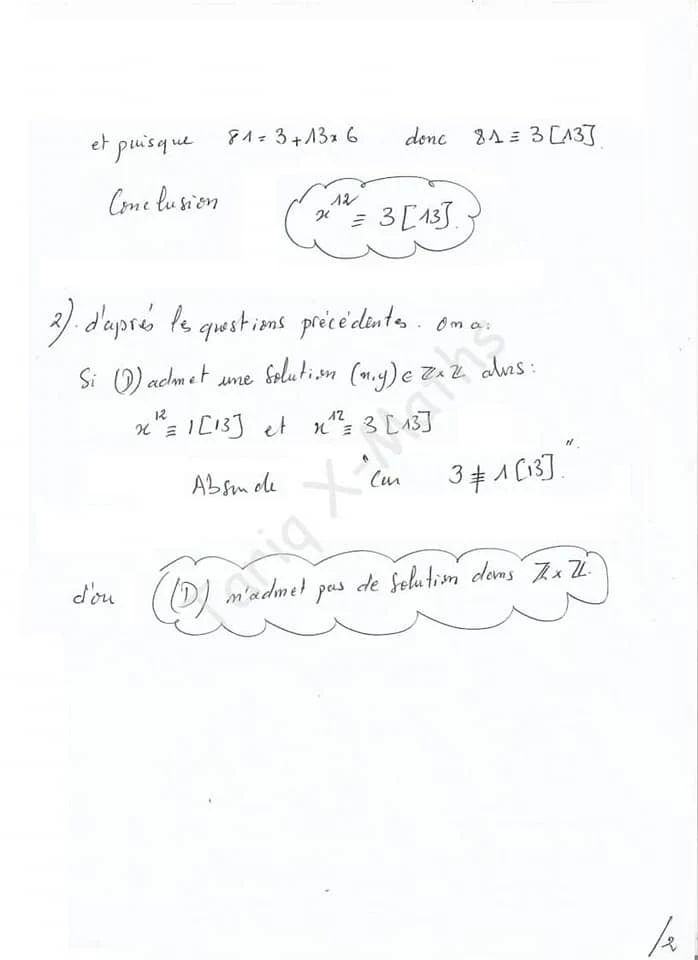 et puisque 81 = 3 + 13 × 6 donc 81 ≡ 3 [13].
Conclusion x¹² ≡ 3 [13].
2). d'aprés les questions précédentes. On a:
Si (D) admet une solution (x,y) ∈ ℤ×ℤ alors:
x¹² ≡ 1 [13] et x¹² ≡ 3 [13]
Absurde "Car 3 ≢ 1 [13]."
d'ou (D) n'admet pas de solution dans ℤ×ℤ.
Tariq X-Maths
/2